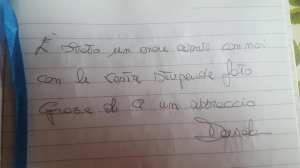 È stato un onore averti con noi
con le vostre stupende foto
Grazie di ❤ un abbraccio